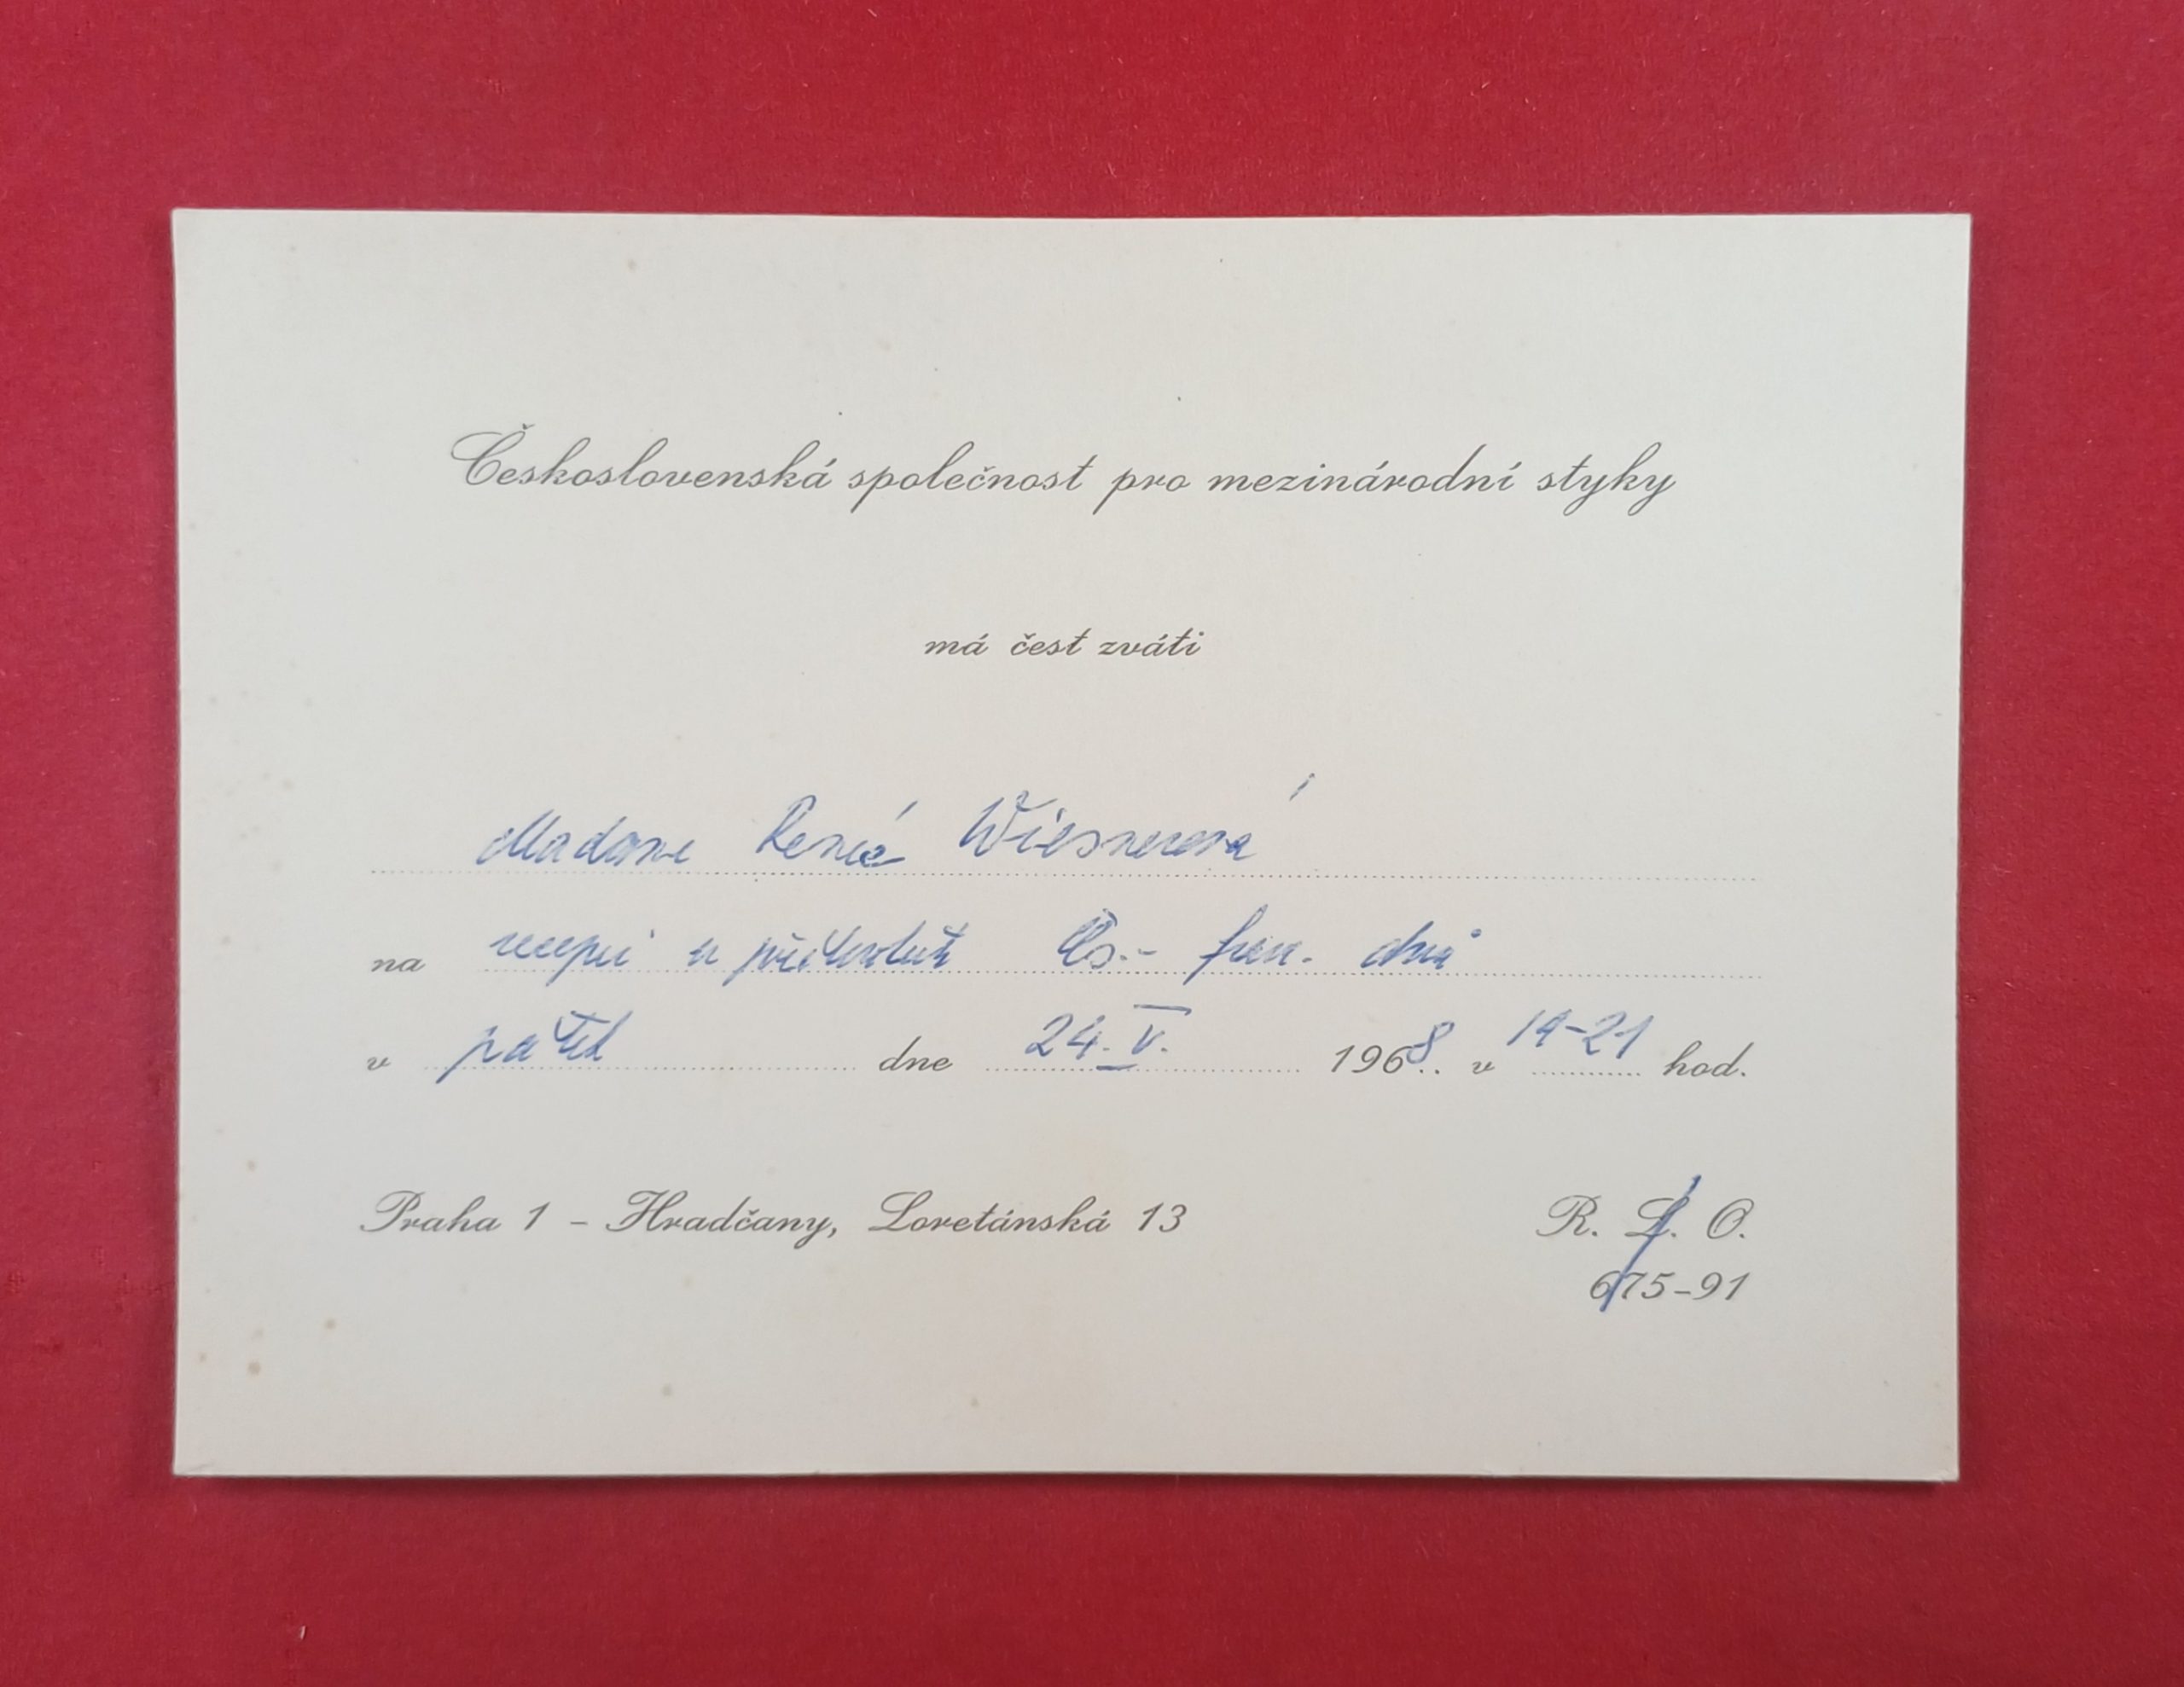 Československá společnost pro mezinárodní styky
má čest zváti
Madame Renée Wiesnerová
na recepci u příležitosti Čs.- fran. dnů
v pátek dne 24. V. 1968.. v 19-21 hod.
Praha 1 – Hradčany, Loretánská 13 R. L. O.
675-91